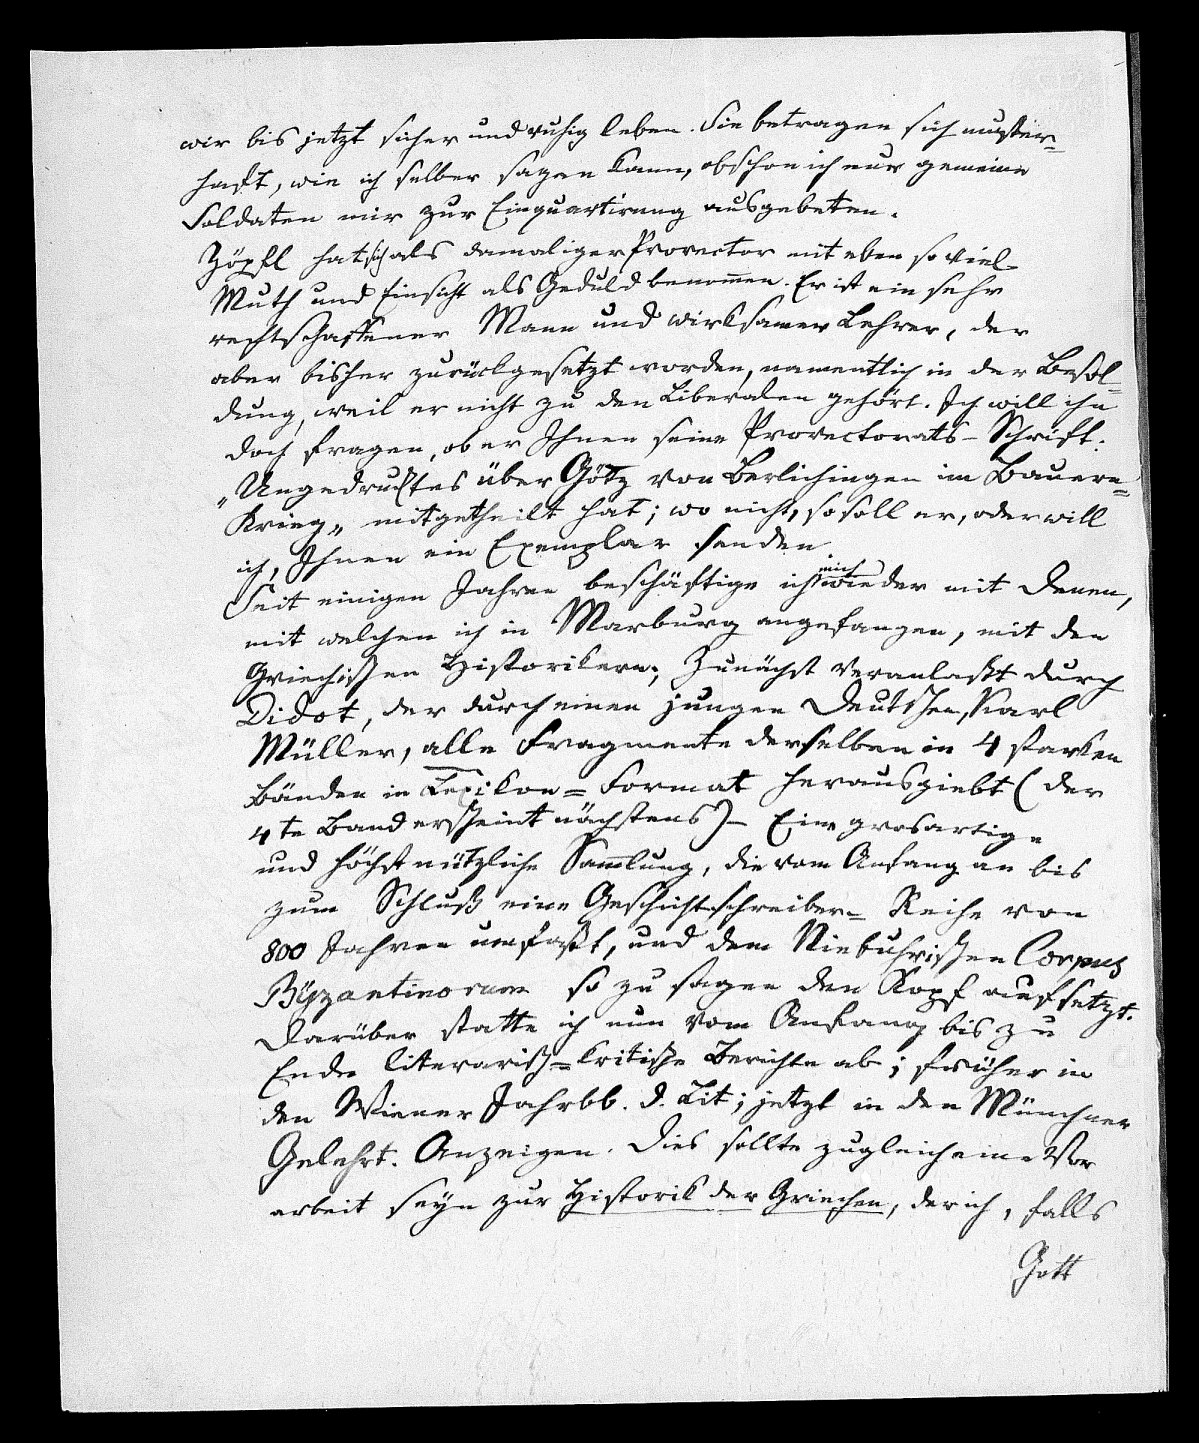 wir bis jetzt sicher und ruhig leben. Sie betragen sich muster=
haft, wie ich selber sagen kann, obschon ich nur gemeine
Soldaten mir zur Einquartirung ausgebeten.
Zöpfl hat sich als damaliger Prorector mit eben so viel
Muth und Einsicht als Geduld benommen. Er ist ein sehr
rechtschaffener Mann und wirksamer Lehrer, der
aber bisher zurückgesetzt worden, namentlich in der Besol=
dung, weil er nicht zu den Liberalen gehört. Ich will ihn
doch fragen, ob er Ihnen seine Prorectorats-Schrift:
„Ungedrucktes über Götz von Berlichingen im Bauern=
Krieg„ mitgetheilt hat; wo nicht, so soll er, oder will
ich, Ihnen ein Exemplar senden.
Seit einigen Jahren beschäftige ich mich wieder mit Denen,
mit welchen ich in Marburg angefangen, mit den
Griechischen Historikern; Zunächst veranlaßt durch
Didot, der durch einen jungen Deutschen, Karl
Müller, alle Fragmente derselben in 4 starken
Bänden in Lexikon=Format herausgiebt (der
4te Band erscheint nächstens) – Eine grosartige
und höchst nützliche Sammlung, die vom Anfang an bis
zum Schluß eine Geschichtschreiber=Reihe von
800 Jahren umfaßt, und dem Niebuhrischen Corpus
Byzantinorum so zu sagen den Kopf aufsetzt.
Darüber statte ich nun vom Anfang bis zu
Ende literarisch=kritische Berichte ab; früher in
den Wiener Jahrbb. d. Lit; jetzt in den Münchner
Gelehrt. Anzeigen. Dies sollte zugleich eine Vor
arbeit seyn zur Historik der Griechen, der ich, falls
Gott